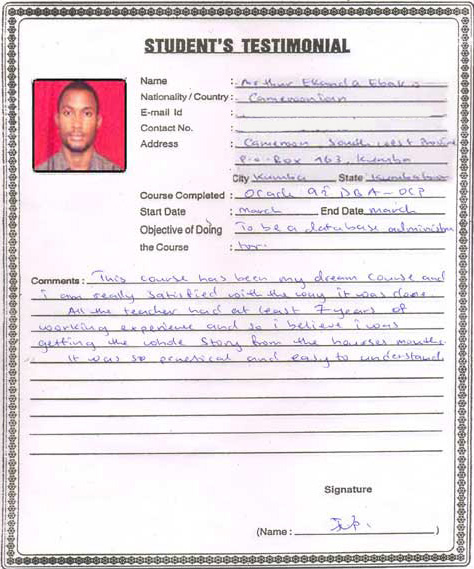 STUDENT'S TESTIMONIAL
Name : Arthur Ekanda Ebak
Nationality / Country : Cameroonian
E-mail Id :
Contact No. :
Address : Cameroon South West Province
P.O. Box 463, Kumba
City Kumba State Kumba
Course Completed : Oracle 9i DBA-OCP
Start Date : march End Date march
Objective of Doing : To be a database administra
the Course : tor.
Comments : This course has been my dream course and
i am really satisfied with the way it was done.
All the teacher had at least 7 years of
working experience and so i believe i was
getting the whole story from the hourses mouth.
It was so practical and easy to understand
Signature
(Name : )